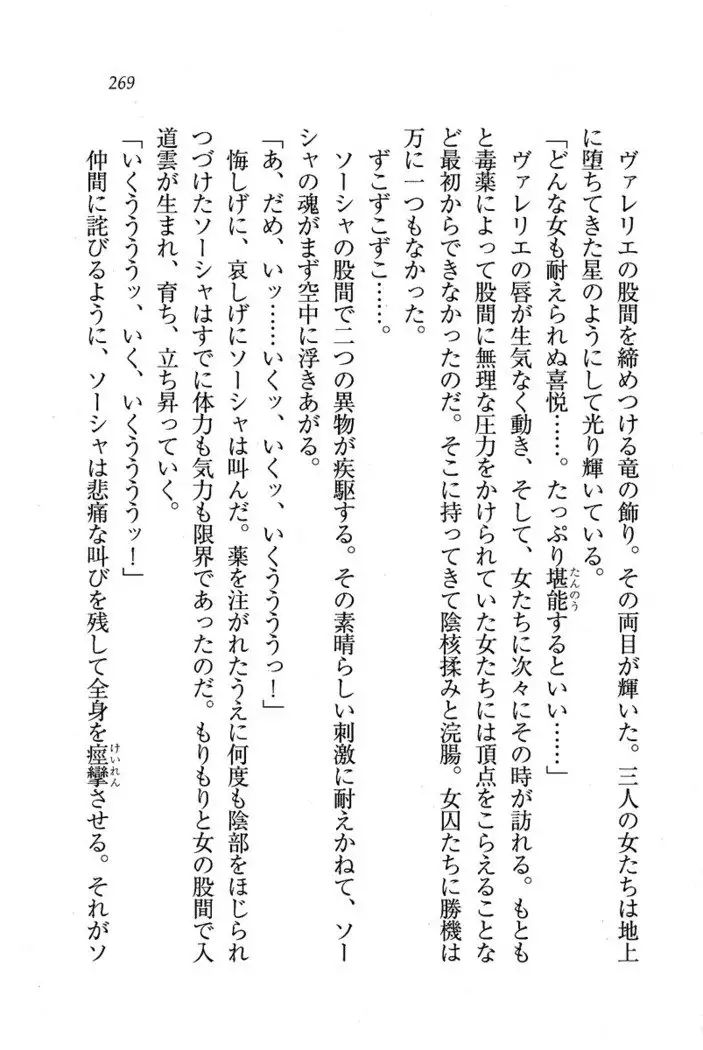 269
ヴァレリエの股間を締めつける竜の飾り。その両目が輝いた。三人の女たちは地上
に堕ちてきた星のようにして光り輝いている。
「どんな女も耐えられぬ喜悦……。たっぷり堪能するといい……」
たんのう
ヴァレリエの唇が生気なく動き、そして、女たちに次々にその時が訪れる。もとも
と毒薬によって股間に無理な圧力をかけられていた女たちには頂点をこらえることな
ど最初からできなかったのだ。そこに持ってきて陰核揉みと浣腸。女囚たちに勝機は
万に一つもなかった。
ずこずこずこ……。
ソーシャの股間で二つの異物が疾駆する。その素晴らしい刺激に耐えかねて、ソー
シャの魂がまず空中に浮きあがる。
「あ、だめ、いッ……いくッ、いくッ、いくうううっ！」
悔しげに、哀しげにソーシャは叫んだ。薬を注がれたうえに何度も陰部をほじられ
つづけたソーシャはすでに体力も気力も限界であったのだ。もりもりと女の股間で入
道雲が生まれ、育ち、立ち昇っていく。
「いくううううッ、いく、いくううううッ！」
仲間に詫びるように、ソーシャは悲痛な叫びを残して全身を痙攣させる。それがソ
けいれん